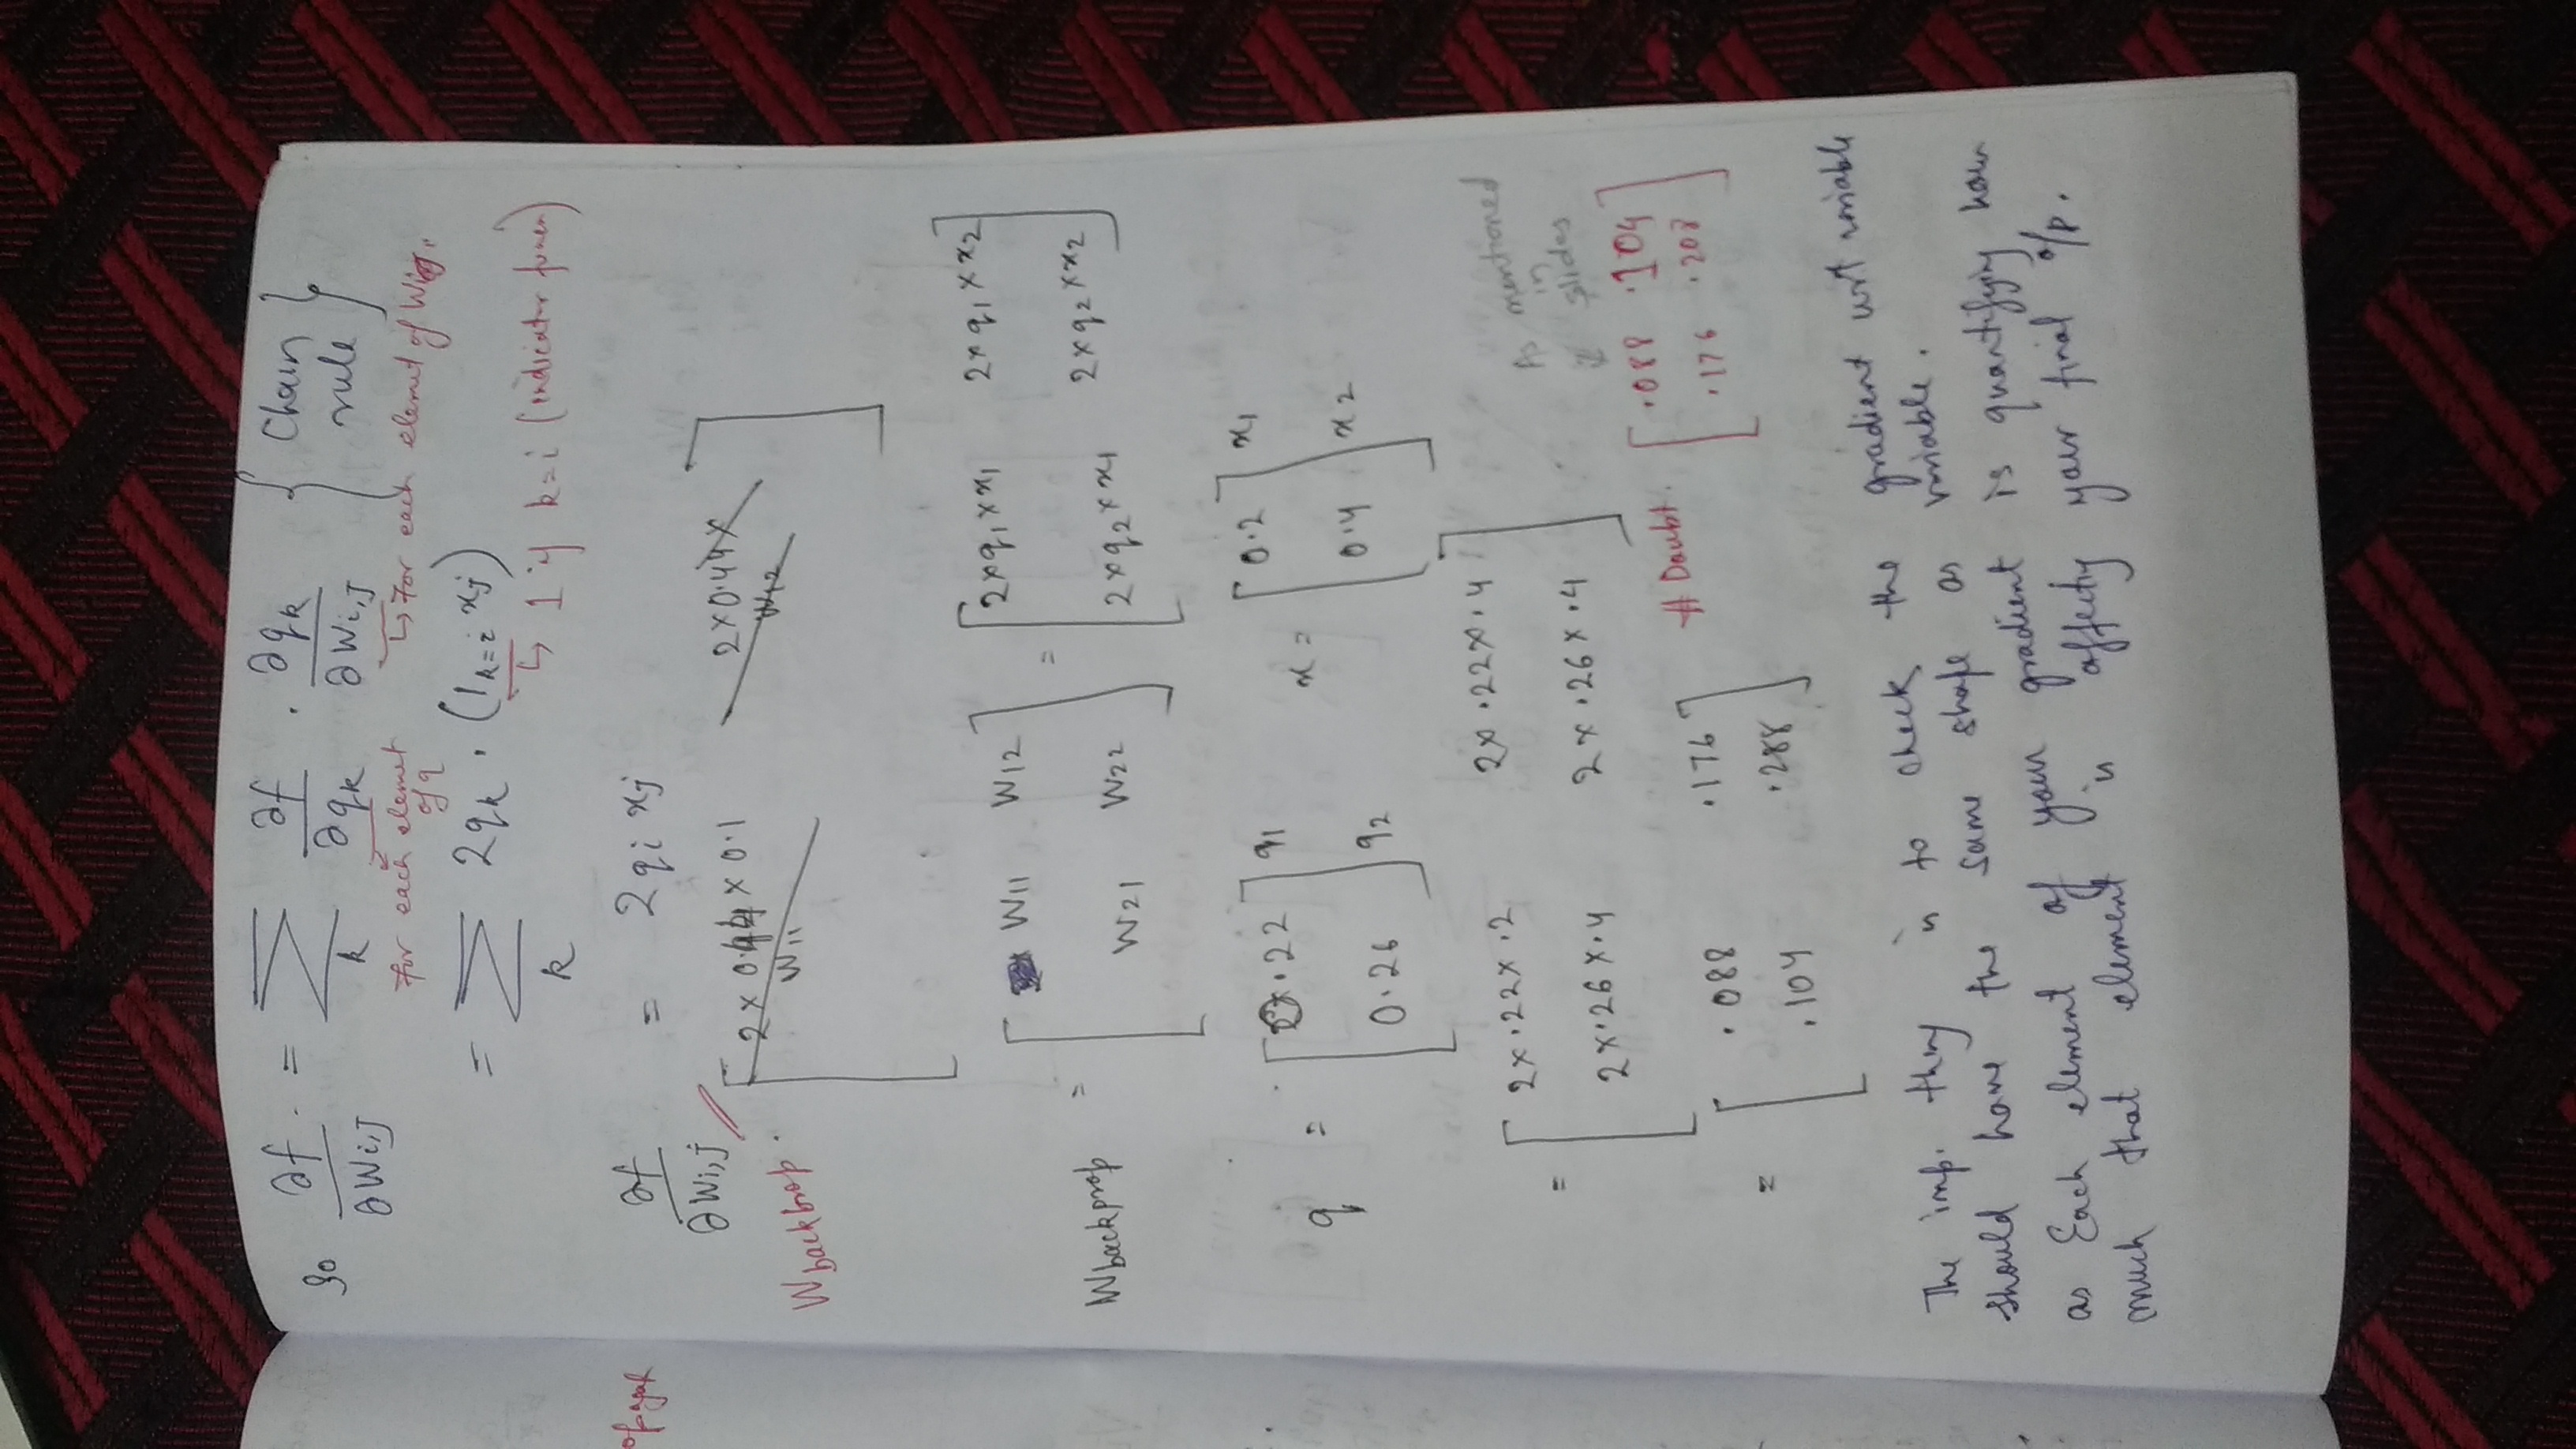 So ∂f/∂Wi,j = Σk ∂f/∂qk · ∂qk/∂Wi,j { Chain rule }
For each elemet of q ↳ For each elemet of Wi,j.
= Σk 2qk · (1k=i xj)
↳ 1 if k=i (indicator funcn)
∂f/∂Wi,j = 2qi xj
Wbackprop. [ 2 × 0.44 × 0.1 2×0.44×
W11 W12 ]
Wbackprop = [ W11 W12 ] = [ 2×q1×x1 2×q1×x2 ]
[ W21 W22 ] [ 2×q2×x1 2×q2×x2 ]
q = [ 0.22 ] q1 x = [ 0.2 ] x1
[ 0.26 ] q2 [ 0.4 ] x2
= [ 2×.22×.2 2×.22×.4 ]
[ 2×.26×.4 2×.26×.4 ]
As mentioned
in
slides
# Doubt. [ .088 .104 ]
[ .176 .208 ]
= [ .088 .176 ]
[ .104 .288 ]
The imp. thing is to check the gradient wrt variable
should have the same shape as variable.
as Each element of your gradient is quantifying how
much that element is affectig your final o/p.